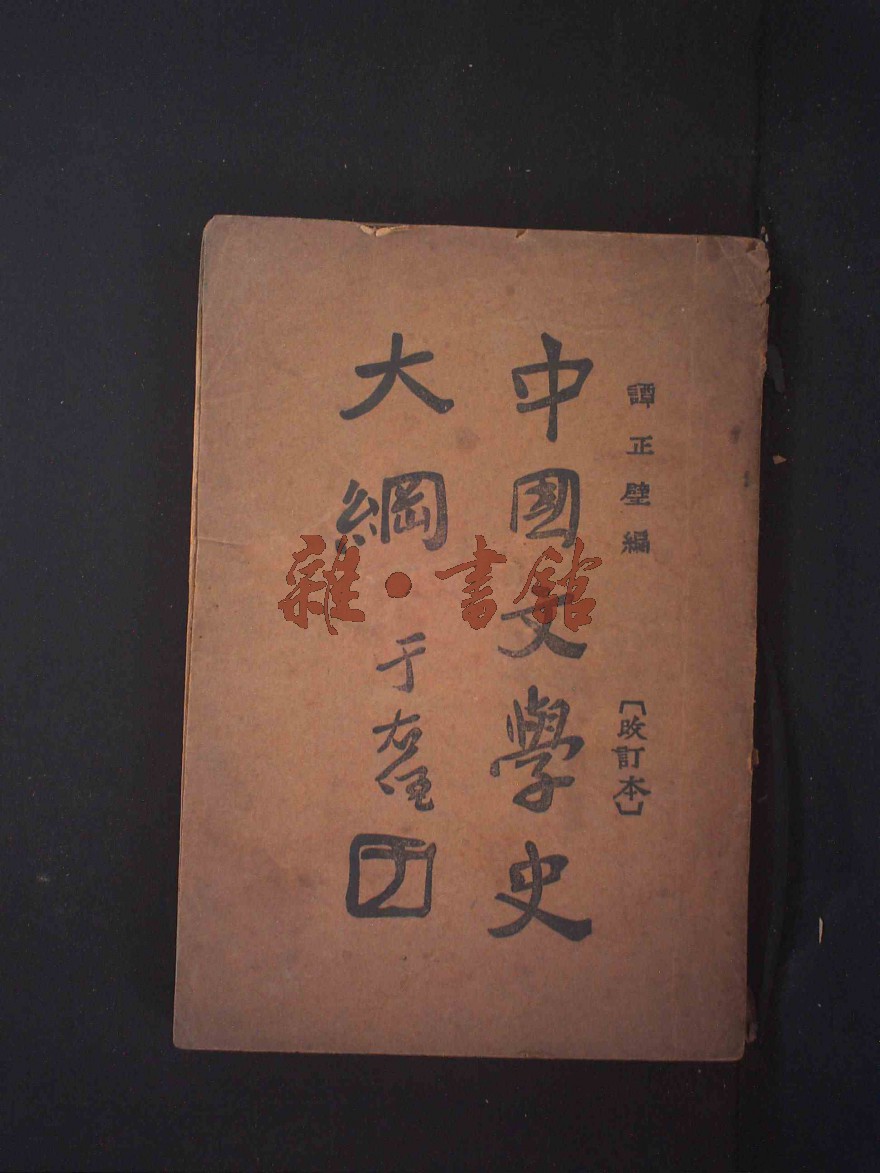 譚正璧編
【改訂本】
中國文學史
大綱
于右任
雜·書館